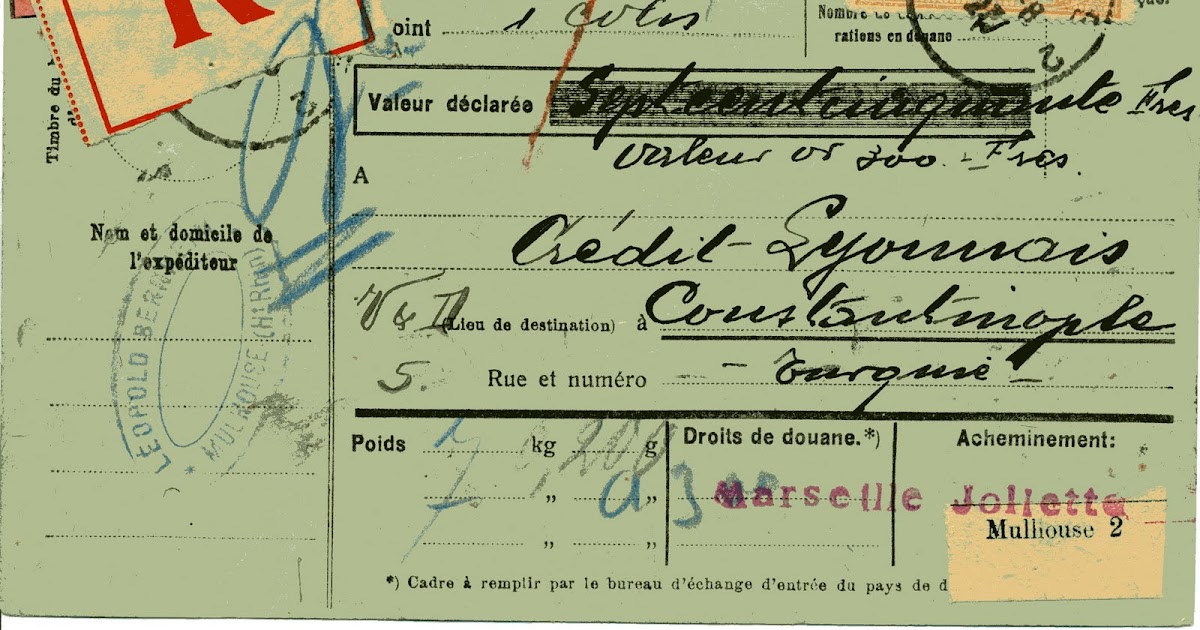 R
oint 1 colis
Nombre de
rations en douane
Timbre du
Valeur déclarée Sept cent cinquante Frcs
Valeur or 300.- Frcs.
A
Nom et domicile de
l'expéditeur
Crédit-Lyonnais
(Lieu de destination) à Constantinople
5. Rue et numéro - Turquie -
LEOPOLD BERN
MULHOUSE (Ht Rhin)
Poids kg g
Droits de douane.*)
Acheminement:
Marseille Joliette
„ „
Mulhouse 2
„ „
*) Cadre à remplir par le bureau d'échange d'entrée du pays de d